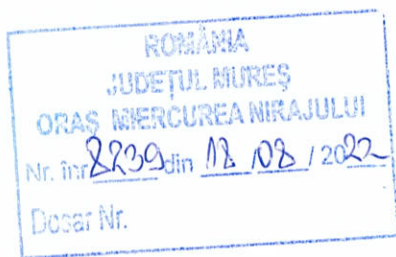 ROMÂNIA
JUDEŢUL MUREŞ
ORAŞ MIERCUREA NIRAJULUI
Nr. înr 8239 din 18 /08 / 2022
Dosar Nr.